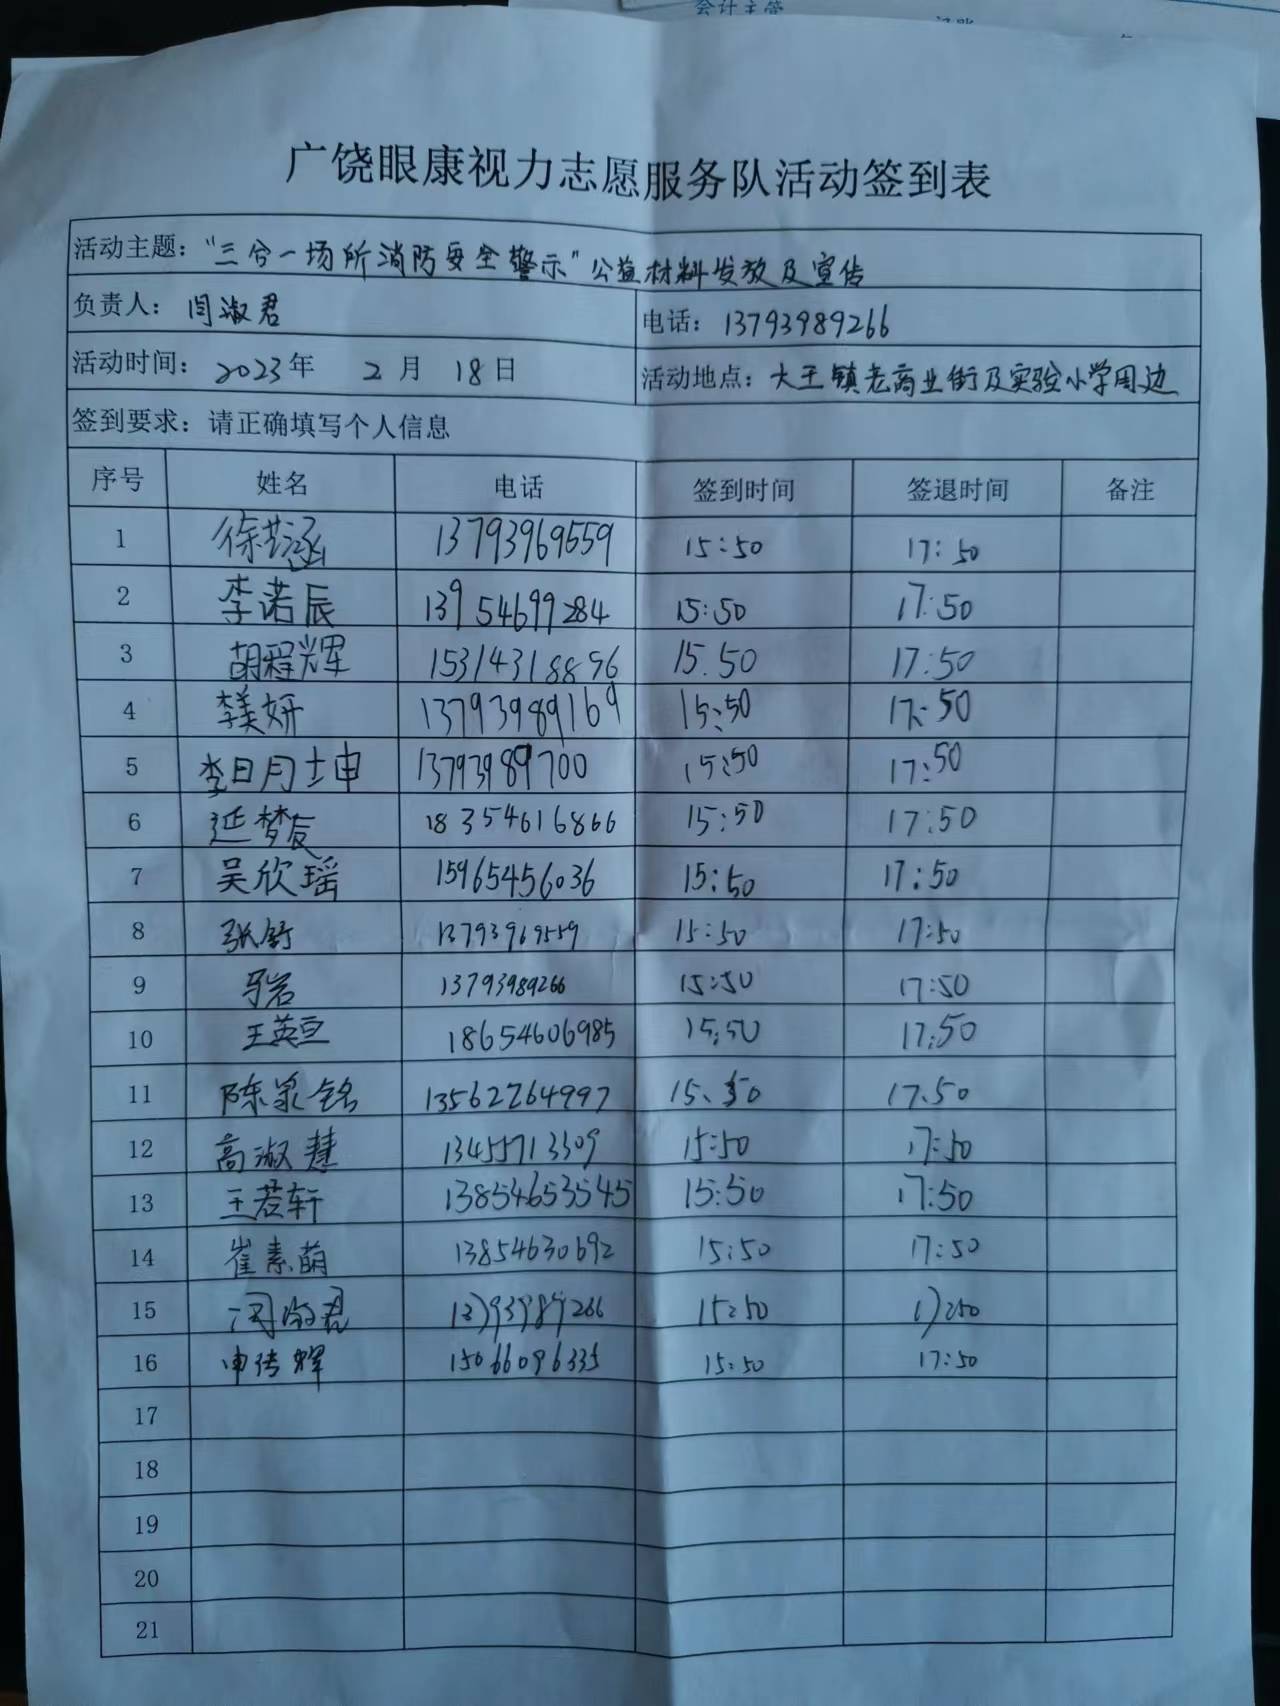 会计主管
广饶眼康视力志愿服务队活动签到表
活动主题：“三合一场所消防安全警示”公益材料发放及宣传
负责人：闫淑君 电话：13793989266
活动时间：2023年 2月 18日 活动地点：大王镇老商业街及实验小学周边
签到要求：请正确填写个人信息
序号 姓名 电话 签到时间 签退时间 备注
1 徐艺涵 13793969559 15:50 17:50
2 李诺辰 13954699284 15:50 17:50
3 胡程辉 15314318896 15.50 17:50
4 李美妍 13793989169 15:50 17:50
5 李明坤 13793989700 15:50 17:50
6 延梦友 18354616866 15:50 17:50
7 吴欣瑶 15965456036 15:50 17:50
8 张舒 13793969559 15:50 17:50
9 13793989266 15:50 17:50
10 王英亘 18654606985 15:50 17:50
11 陈泉铭 13562264997 15.50 17.50
12 高淑慧 13455713309 15:50 17:50
13 王若轩 13854653545 15:50 17:50
14 崔素萌 13854630692 15:50 17:50
15 闫淑君 13793989266 15:50 17:50
16 申传辉 15066096335 15:50 17:50
17
18
19
20
21